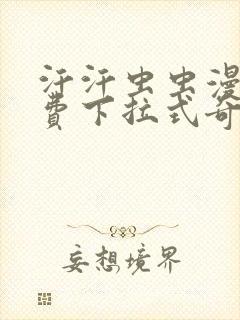 汗汗虫虫漫
费下拉式奇
妄想境界